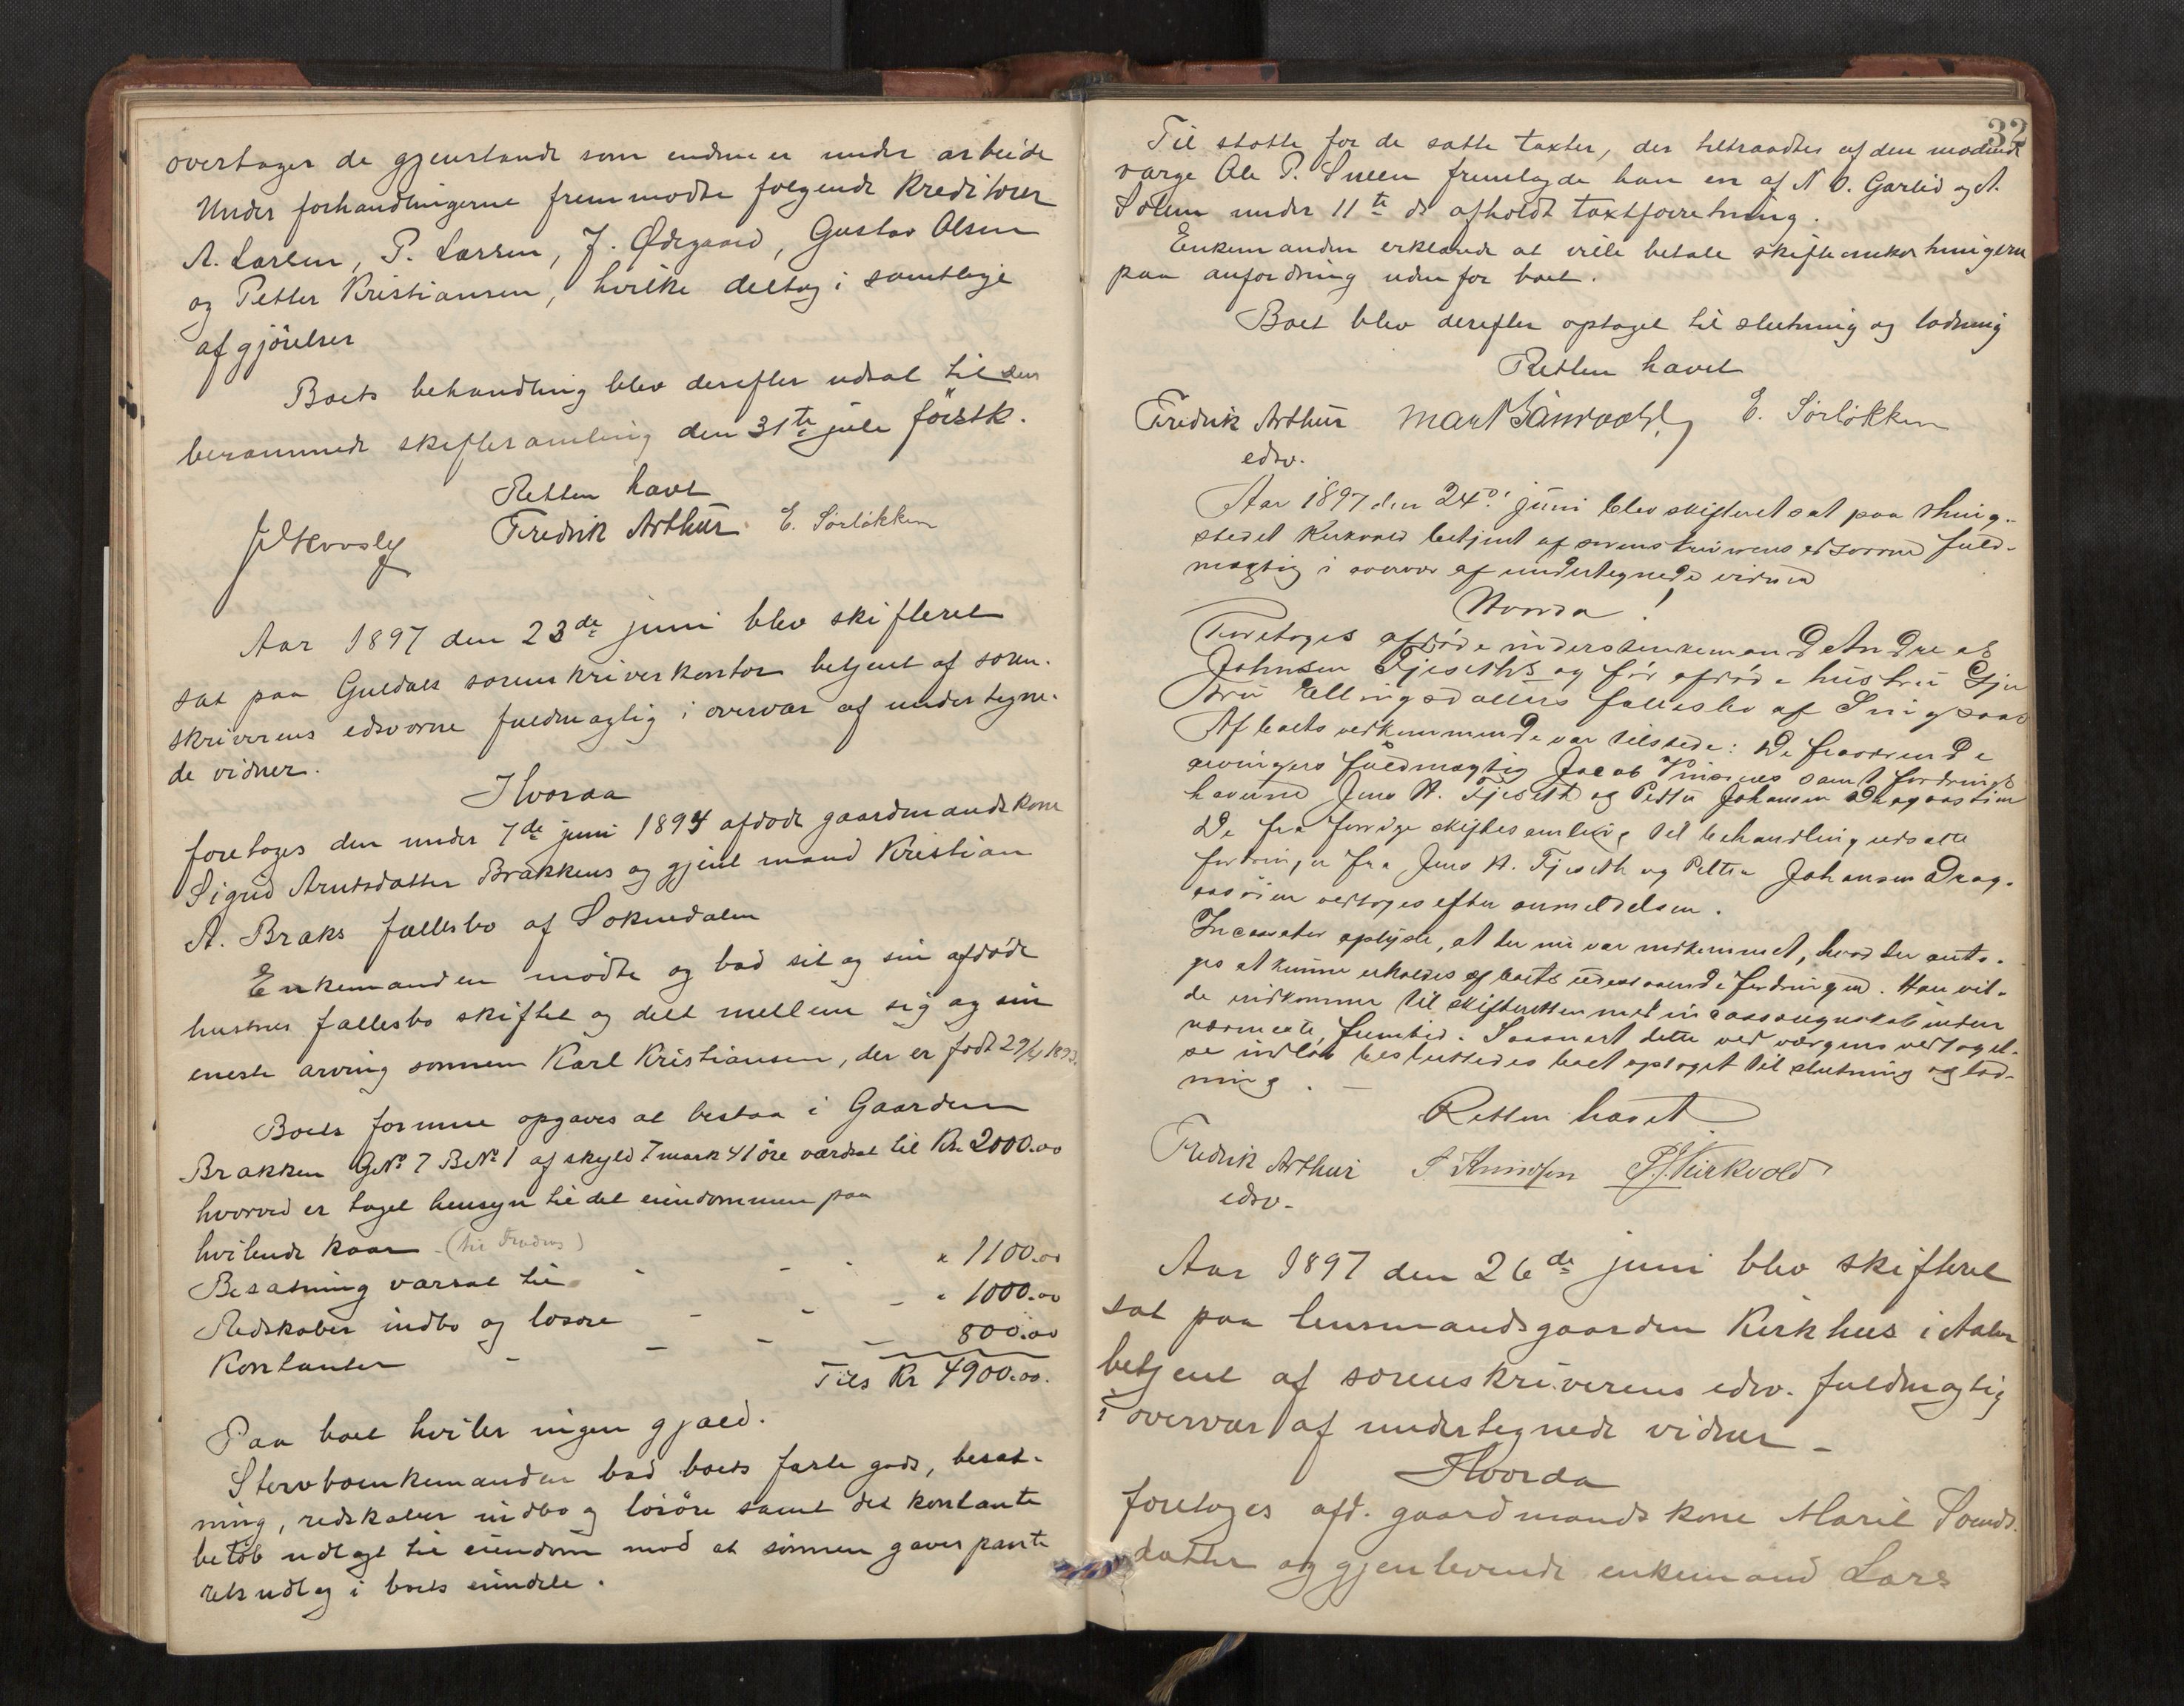 overtager de gjenstande som endnu er under arbeide
Under forhandlingerne fremmødte følgende kreditorer
A. Larsen, P. Larsen, J. Ødegaard, Gustav Olsen
og Petter Kristiansen, hvilke deltog i samtlige
afgjörelser
Boets behandling blev derefter udsat til den
berammede skiftesamling den 31te juli förstk.
Retten hævet
Fredrik Arthur E. Sörlökken
Aar 1897 den 23de juni blev skifteret
sat paa Guldals sorenskriverkontor betjent af soren-
skriverens edsvorne fuldmægtig i overvær af undertegne-
de vidner.
Hvorda
foretoges den under 7de juni 1894 afdøde gaardmandskone
Sigrid Arntsdatter Brækkens og gjenl mand Kristian
A. Bræks fællesbo af Soknedalen
Enkemanden mödte og bad sit og sin afdöde
hustrus fællesbo skiftet og delt mellem sig og sin
eneste arving sönnen Karl Kristiansen, der er født 29/4 1893.
Boets formue opgaves at bestaa i Gaarden
Brækken GNo 7 BNo 1 af skyld 7 mark 41 öre værdsat til Kr. 2000.00
hvorved er taget hensyn til det eiendommen paa
hvilende kaar
Besætning værsat til - - - " 1100.00
Redskaber indbo og løsøre - - - " 1000.00
Kontanter - - - 800.00
Tils Kr 4900.00.
Paa boet hviler ingen gjæld.
Stervboenkemanden bad boets faste gods, besæt-
ning, redskaber indbo og lösöre samt det kontante
belöb udlagt til eiendom mod at sönnen gaves pante
rets udlæg i boets eiendele.
32
Til støtte for de satte taxter, der tiltraadtes af den mødende
værge Ole P. Sneen fremlagde han en af N O. Garlid og A.
Solem under 11te ds afholdt taxtforretning.
Enkemanden erklærede at ville betale skifteomkostningerne
paa anfordring udenfor boet.
Boet blev derefter optaget til slutning og lodning
Retten hævet
Fredrik Arthur E. Sörlökken
edsv.
Aar 1897 den 24de juni blev skifteret sat paa thing-
stedet Kirkvold betjent af sorenskriverens edsvorne fuld-
mægtig i overvær af undertegnede vidner
Hvorda!
Foretoges afdöde inderstenkemand Andreas
Johnsen Fjeseths og för afdöde hustru Gju
Ellingsdatters fællesbo af Singsaas
Af boets vedkommende var tilstede: De fraværende
arvingers fuldmægtig Jacob samt fordrings
haverne Jens A. Fjeseth og Petter Johansen Dragaasöien
De fra forrige skiftesamling til behandling udsatte
fordringer fra Jens A. Fjeseth og Petter Johansen Drag-
aasöien vedtoges efter anmeldelsen.
Incassator oplyste, at der nu var indkommet, hvad der anto-
ges at kunne erholdes af boets udestaaende fordringer. Han vil-
de indkomme til skifteretten med incassoregnskab inden
nærmeste fremtid. Saasnart dette ved værgens vedtagel-
se indløb besluttedes boet optaget til slutning og lod-
ning. —
Retten hævet
Fredrik Arthur J Knudsen Kirkvold
edsv.
Aar 1897 den 26de juni blev skifteret
sat paa lensmandsgaarden Kirkhus i Aalen
betjent af sorenskriverens edsv. fuldmægtig
i overvær af undertegnede vidner -
Hvorda
foretoges afd. gaardmandskone Marit Svends
datter og gjenlevende enkemand Lars